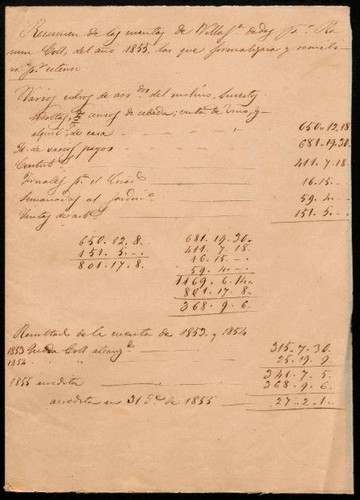 Resumen de las cuentas de Villaf.ª dadas p.r Ra-
mon Coll, del año 1855, las que formalizara y remiti-
ra p.r estenso
Varios cobros de arr.dos del molino,
censos de cebada; venta de vino, y
alquil.s de casa 650..12..18
Id. de varios pagos 681..19..30
Contrib.n 411..7..18
Jornales p.r el 16..15..
Semanadas al jardin.o 59..4..
Ventas de 151..5..
650..12..8. 681..19..30.
151..5.... 411..7..18
801..17..8. 16..15..
59..4..
1169..6..14.
801..17..8
368..9..6
Resultado de la cuenta de 1853 y 1854
1853 Queda Coll alcanz.do 315..7..30.
1854 25..19..9.
341..7..5.
1855 acredita 368..9..6.
acredita en 31 D.e de 1855 27..2..1..